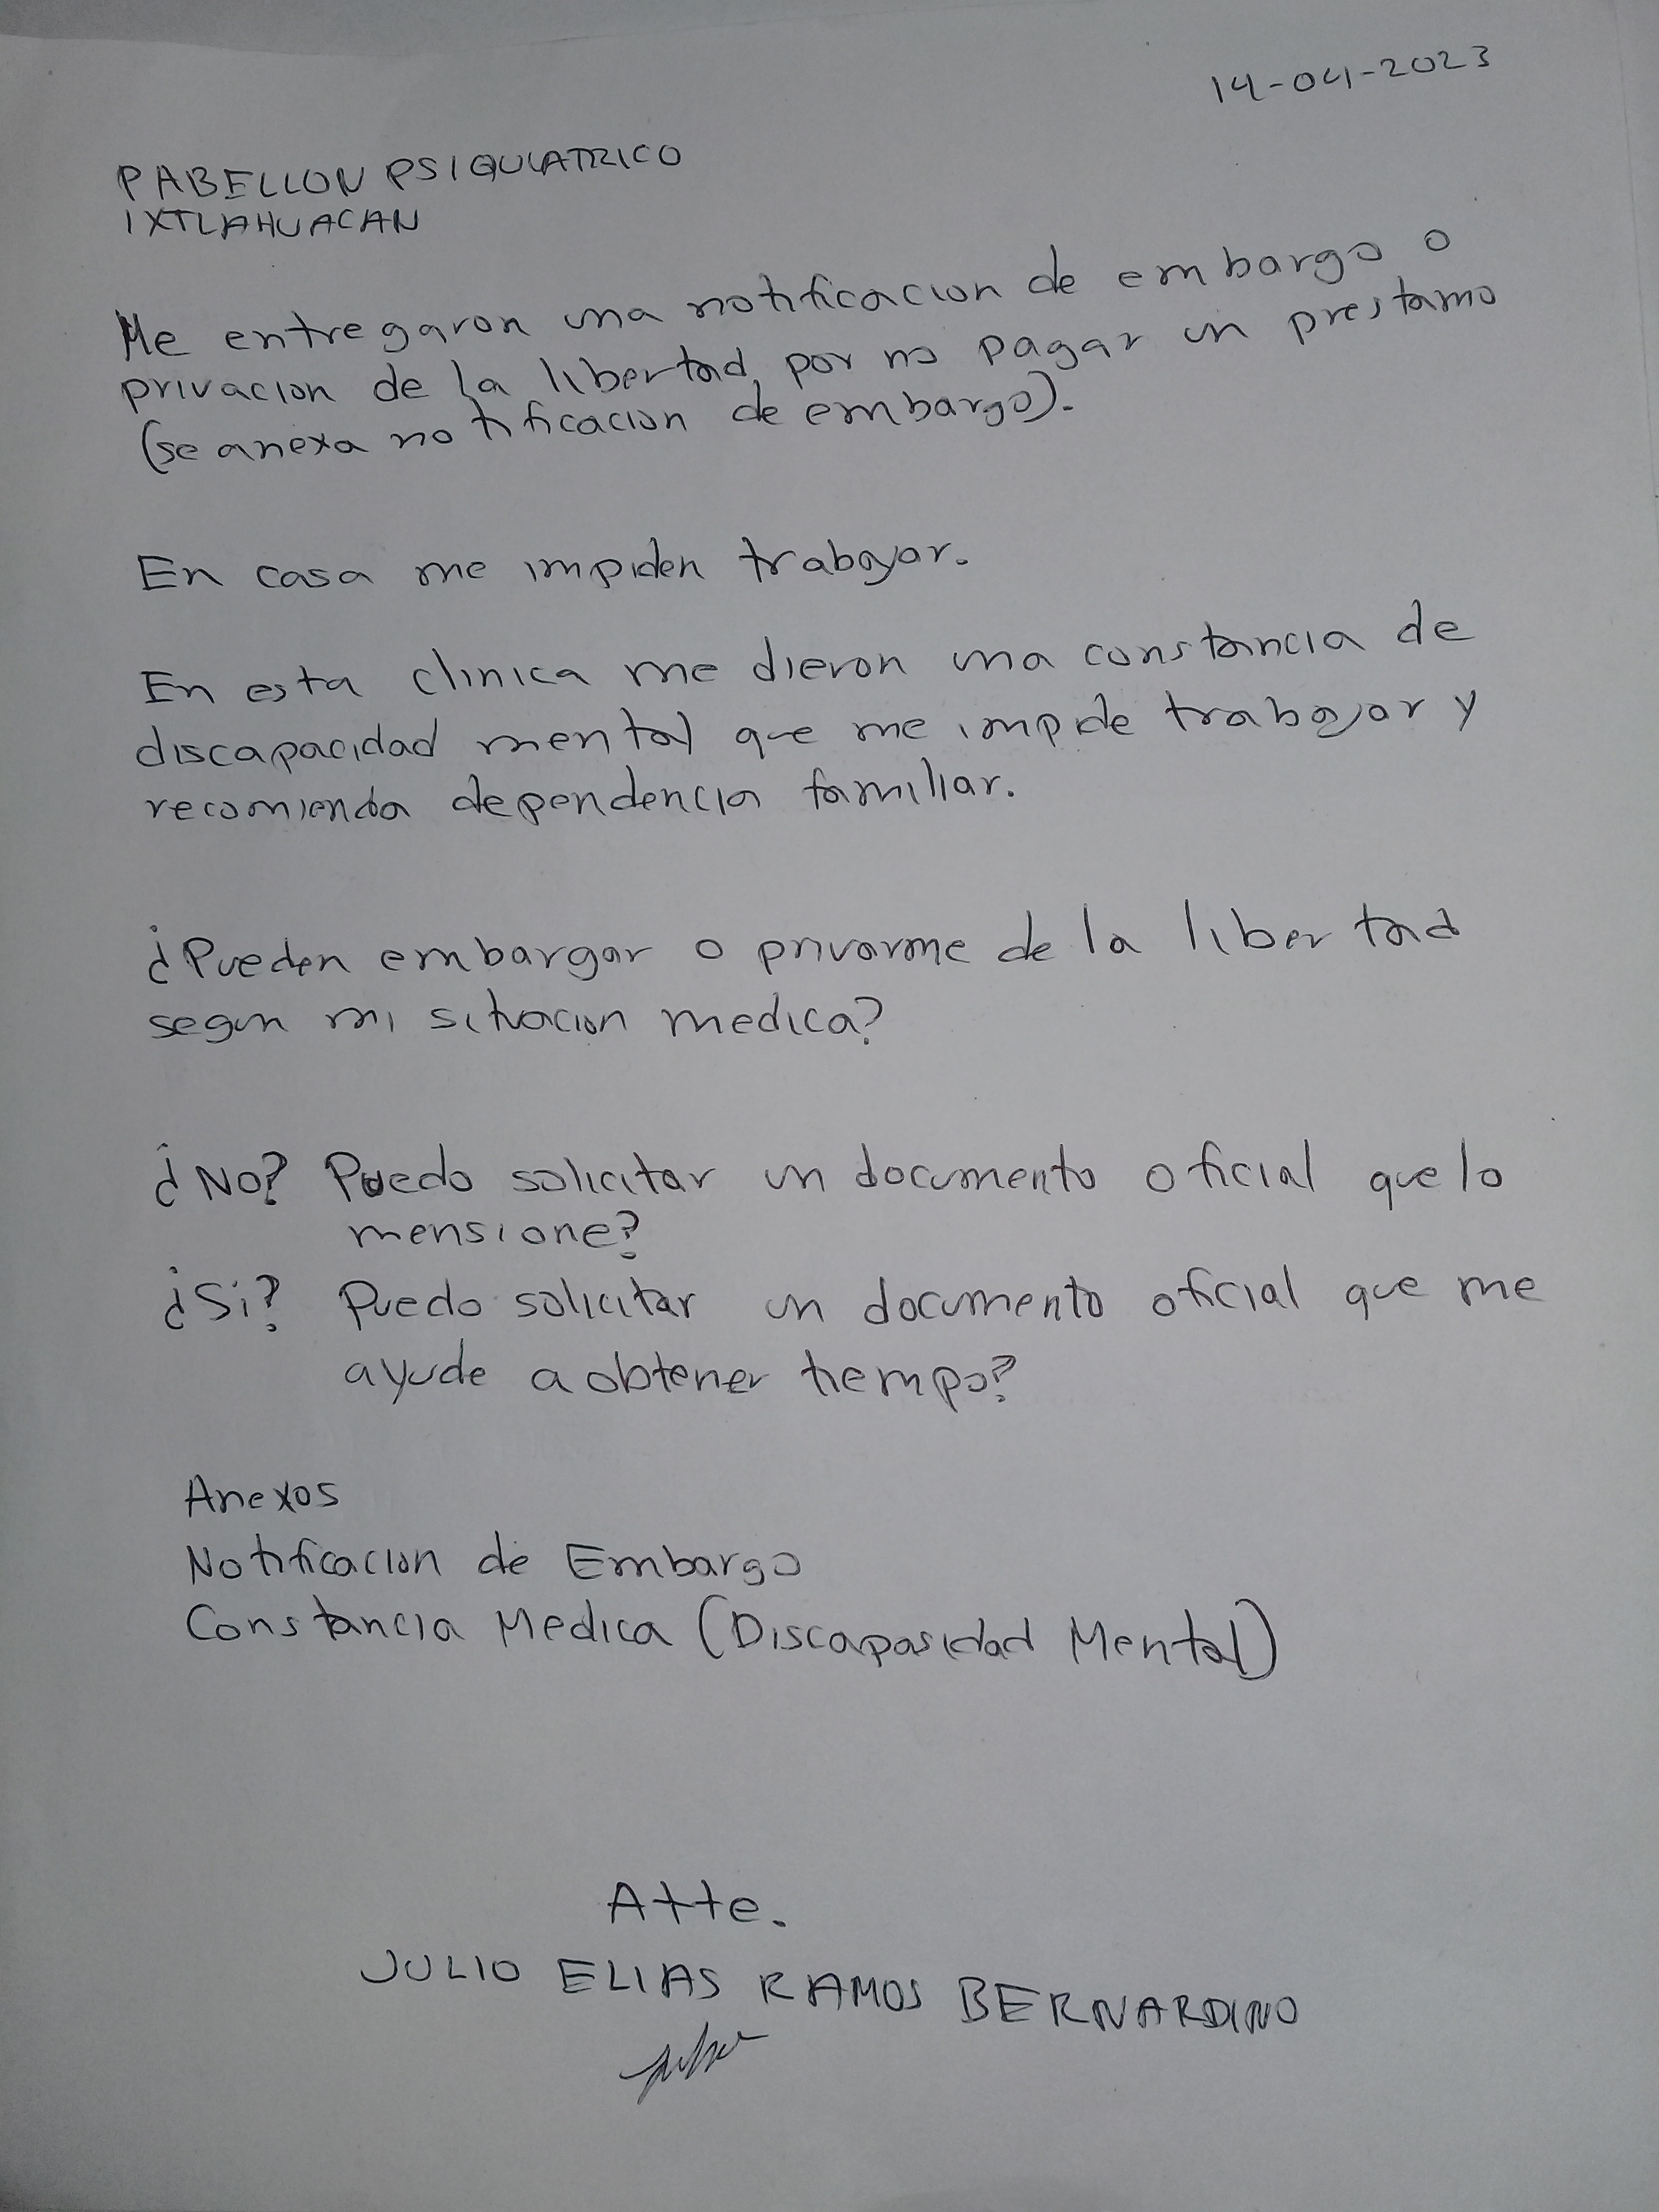 14-04-2023
PABELLON PSIQUIATRICO
IXTLAHUACAN
Me entregaron una notificacion de embargo o
privacion de la libertad, por no pagar un prestamo
(se anexa notificacion de embargo).
En casa me impiden trabajar.
En esta clinica me dieron una constancia de
discapacidad mental que me impide trabajar y
recomienda dependencia familiar.
¿Pueden embargar o privarme de la libertad
segun mi situacion medica?
¿No? Puedo solicitar un documento oficial que lo
mensione?
¿Si? Puedo solicitar un documento oficial que me
ayude a obtener tiempo?
Anexos
Notificacion de Embargo
Constancia Medica (Discapasidad Mental)
Atte.
JULIO ELIAS RAMOS BERNARDINO